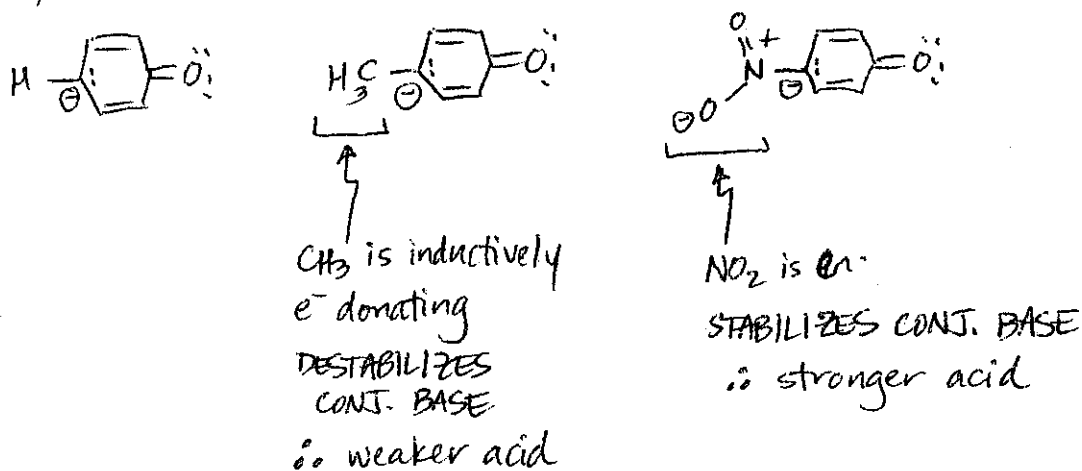 H ⊖ =O:
H₃C ⊖ =O:
O
N +
⊖O ⊖ =O:
CH₃ is inductively
e⁻ donating
DESTABILIZES
CONJ. BASE
∴ weaker acid
NO₂ is
STABILIZES CONJ. BASE
∴ stronger acid